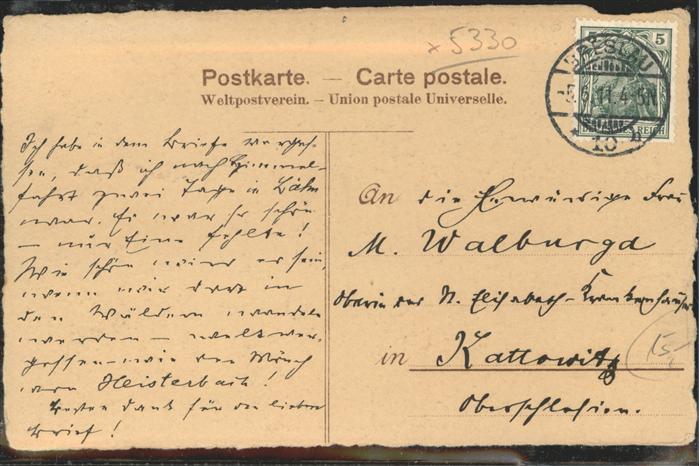 x 5330
Postkarte. — Carte postale.
Weltpostverein. – Union postale Universelle.
5
BRESLAU
5.6.11.4-5N
* 10
REICH
Ich habe in dem Briefe verges-
sen, daß ich nach Himmel-
fahrt zwei Tage in
war. Es war so schön
– nur Eine fehlte!
Wie schön wird es sein,
wenn wir dort in
den Wäldern wandeln
werden – weltver-
gessen – wie der Mönch
von Heisterbach!
Besten Dank für den lieben
Brief!
An die Ehrwürdige Frau
M. Walburga
Oberin des St. Elisabeth-Krankenhauses
in Kattowitz
Oberschlesien.
15,-